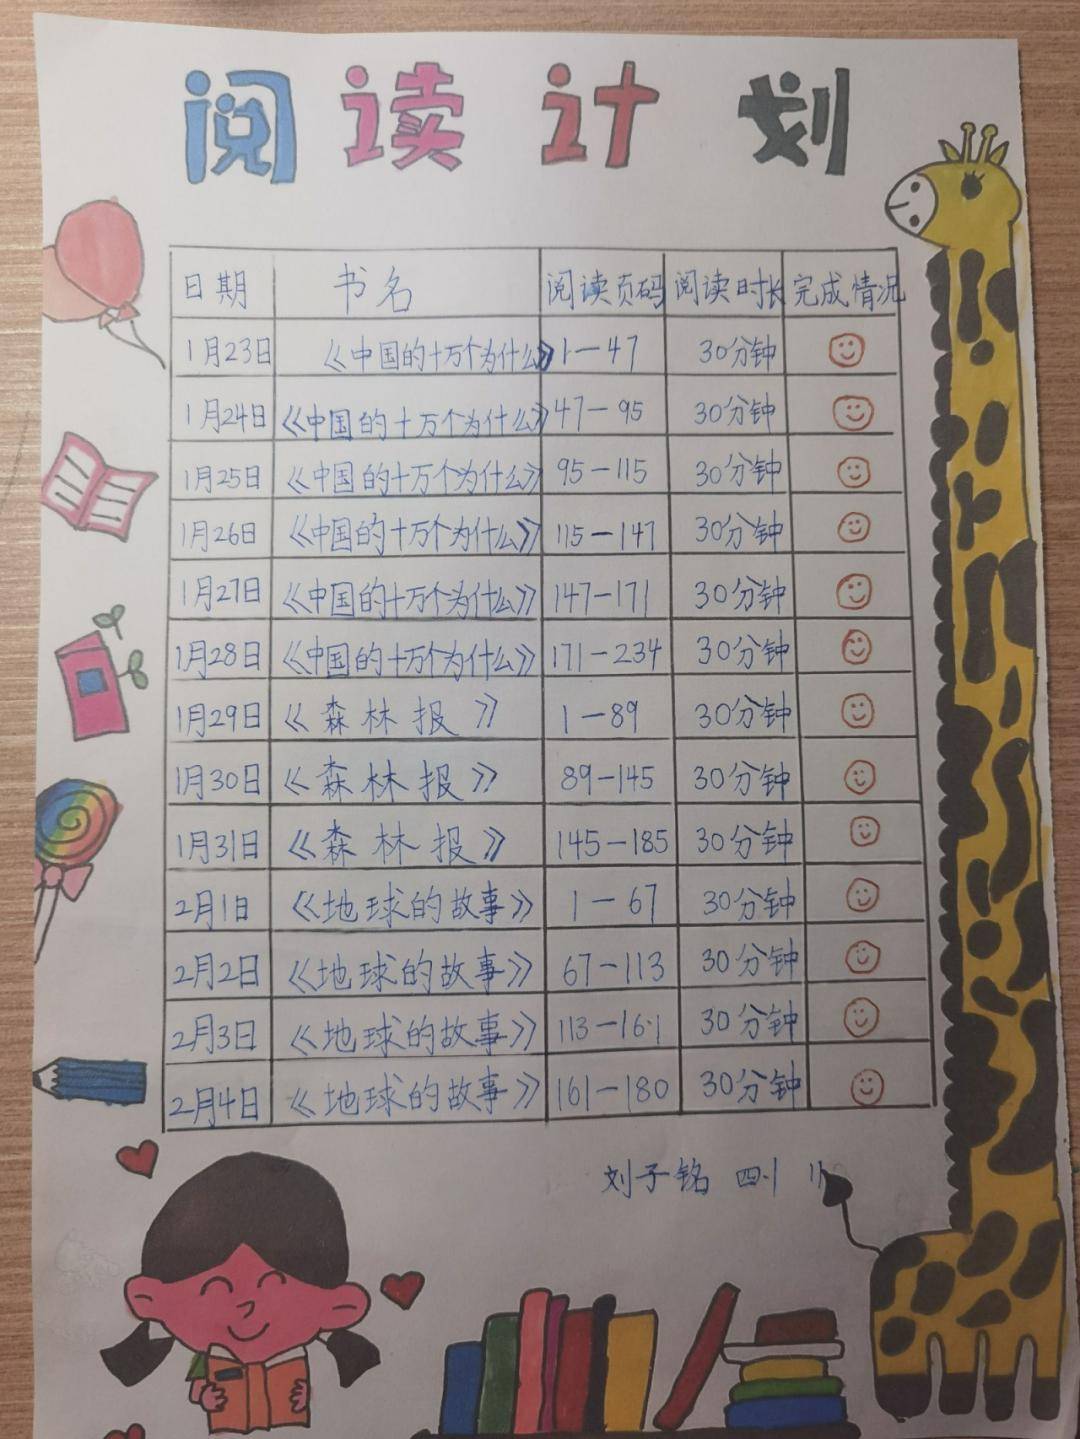 阅读计划
日期 书名 阅读页码 阅读时长 完成情况
1月23日 《中国的十万个为什么》 1—47 30分钟
1月24日 《中国的十万个为什么》 47—95 30分钟
1月25日 《中国的十万个为什么》 95—115 30分钟
1月26日 《中国的十万个为什么》 115—147 30分钟
1月27日 《中国的十万个为什么》 147—171 30分钟
1月28日 《中国的十万个为什么》 171—234 30分钟
1月29日 《森林报》 1—89 30分钟
1月30日 《森林报》 89—145 30分钟
1月31日 《森林报》 145—185 30分钟
2月1日 《地球的故事》 1—67 30分钟
2月2日 《地球的故事》 67—113 30分钟
2月3日 《地球的故事》 113—161 30分钟
2月4日 《地球的故事》 161—180 30分钟
刘子铭